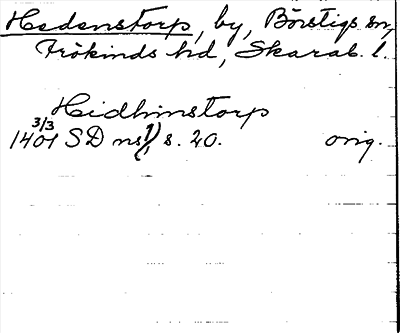 Hedenstorp, by, Börstigs sn,
Frökinds hd, Skarab. l.
Hidhinstorp
3/3
1401 SD ns 1, s. 20. orig.